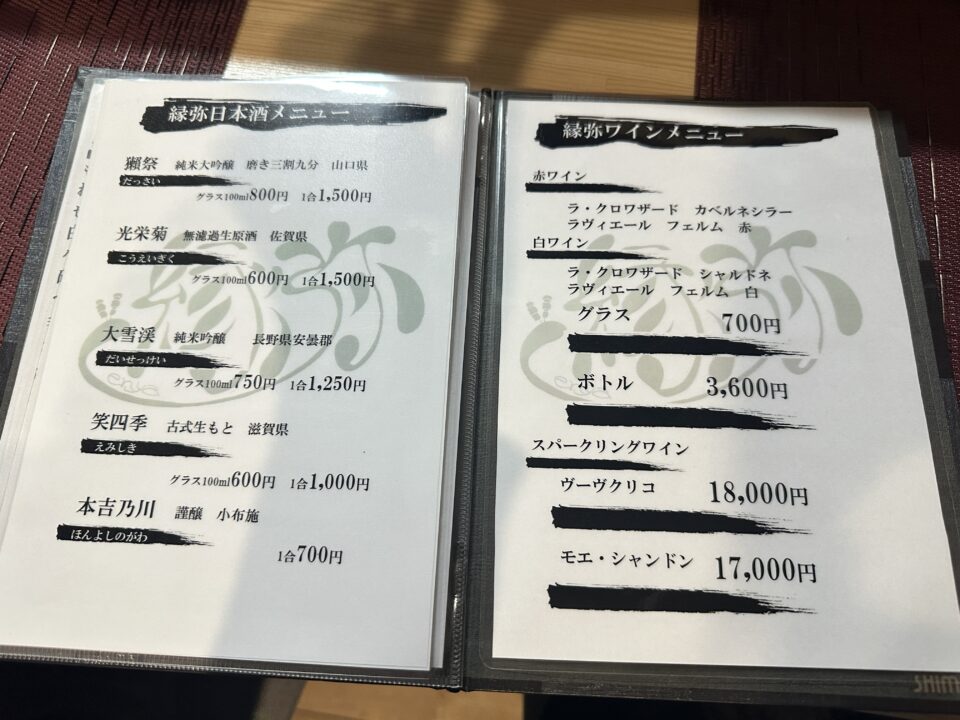 縁弥日本酒メニュー
獺祭 純米大吟醸 磨き三割九分 山口県
だっさい
グラス100ml800円 1合1,500円
光栄菊 無濾過生原酒 佐賀県
こうえいぎく
グラス100ml600円 1合1,500円
大雪渓 純米吟醸 長野県安曇郡
だいせっけい
グラス100ml750円 1合1,250円
笑四季 古式生もと 滋賀県
えみしき
グラス100ml600円 1合1,000円
本吉乃川 謹醸 小布施
ほんよしのがわ
1合700円
縁弥
enya
縁弥ワインメニュー
赤ワイン
ラ・クロワザード カベルネシラー
ラヴィエール フェルム 赤
白ワイン
ラ・クロワザード シャルドネ
ラヴィエール フェルム 白
グラス 700円
ボトル 3,600円
スパークリングワイン
ヴーヴクリコ 18,000円
モエ・シャンドン 17,000円
縁弥
enya
SHIM